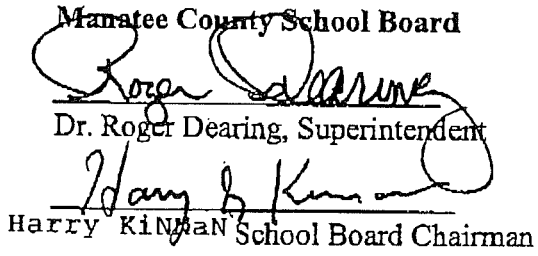 Manatee County School Board
Roger Dearing
Dr. Roger Dearing, Superintendent
Harry Kinnan
Harry KiNNaN School Board Chairman